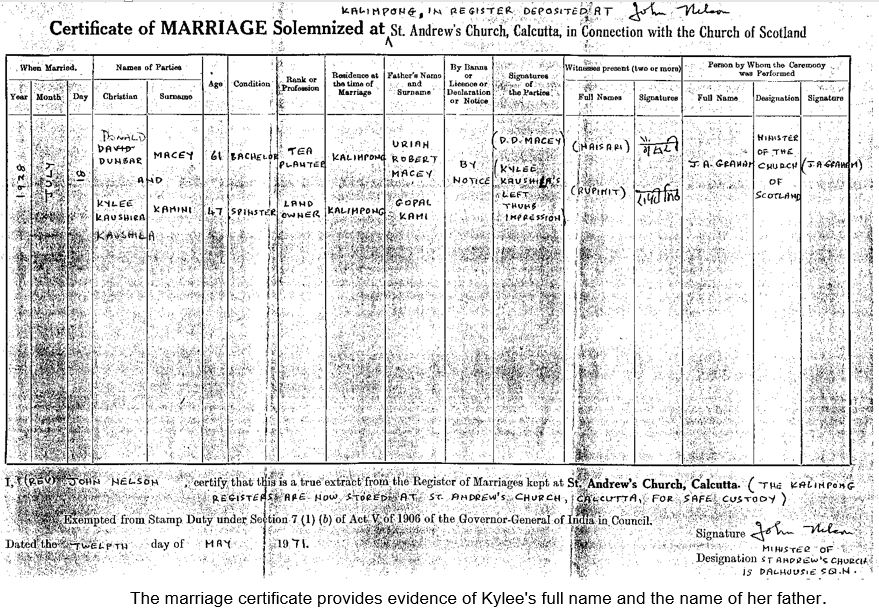 KALIMPONG, IN REGISTER DEPOSITED AT John Nelson
Certificate of MARRIAGE Solemnized at St. Andrew's Church, Calcutta, in Connection with the Church of Scotland
When Married.
Year
Month
Day
Names of Parties
Christian
Surname
Age
Condition
Rank or
Profession
Residence at
the time of
Marriage
Father's Name
and
Surname
By Banns
or
Licence or
Declaration
or Notice
Signatures
of
the Parties
Witnesses present (two or more)
Full Names
Signatures
Person by Whom the Ceremony
was Performed
Full Name
Designation
Signature
1928
JULY
18
DONALD
DAVID
DUNBAR
MACEY
61
BACHELOR
TEA
PLANTER
KALIMPONG
URIAH
ROBERT
MACEY
AND
KYLEE
KAUSHIRA
KAUSHILA
KAMINI
47
SPINSTER
LAND
OWNER
KALIMPONG
GOPAL
KAMI
BY
NOTICE
(D.D. MACEY)
(KYLEE
KAUSHILA'S
LEFT
THUMB
IMPRESSION)
(HAISARI)
(RUPIMIT)
J.A. GRAHAM
MINISTER
OF THE
CHURCH
OF
SCOTLAND
(J.A. GRAHAM)
I, (REV) JOHN NELSON, certify that this is a true extract from the Register of Marriages kept at St. Andrew's Church, Calcutta. (THE KALIMPONG
REGISTERS ARE NOW STORED AT ST ANDREW'S CHURCH, CALCUTTA, FOR SAFE CUSTODY)
Exempted from Stamp Duty under Section 7 (1) (b) of Act V of 1906 of the Governor-General of India in Council.
Dated the TWELFTH day of MAY 1971.
Signature John Nelson
Designation MINISTER OF
ST ANDREW'S CHURCH
15 DALHOUSIE SQ. N.
The marriage certificate provides evidence of Kylee's full name and the name of her father.